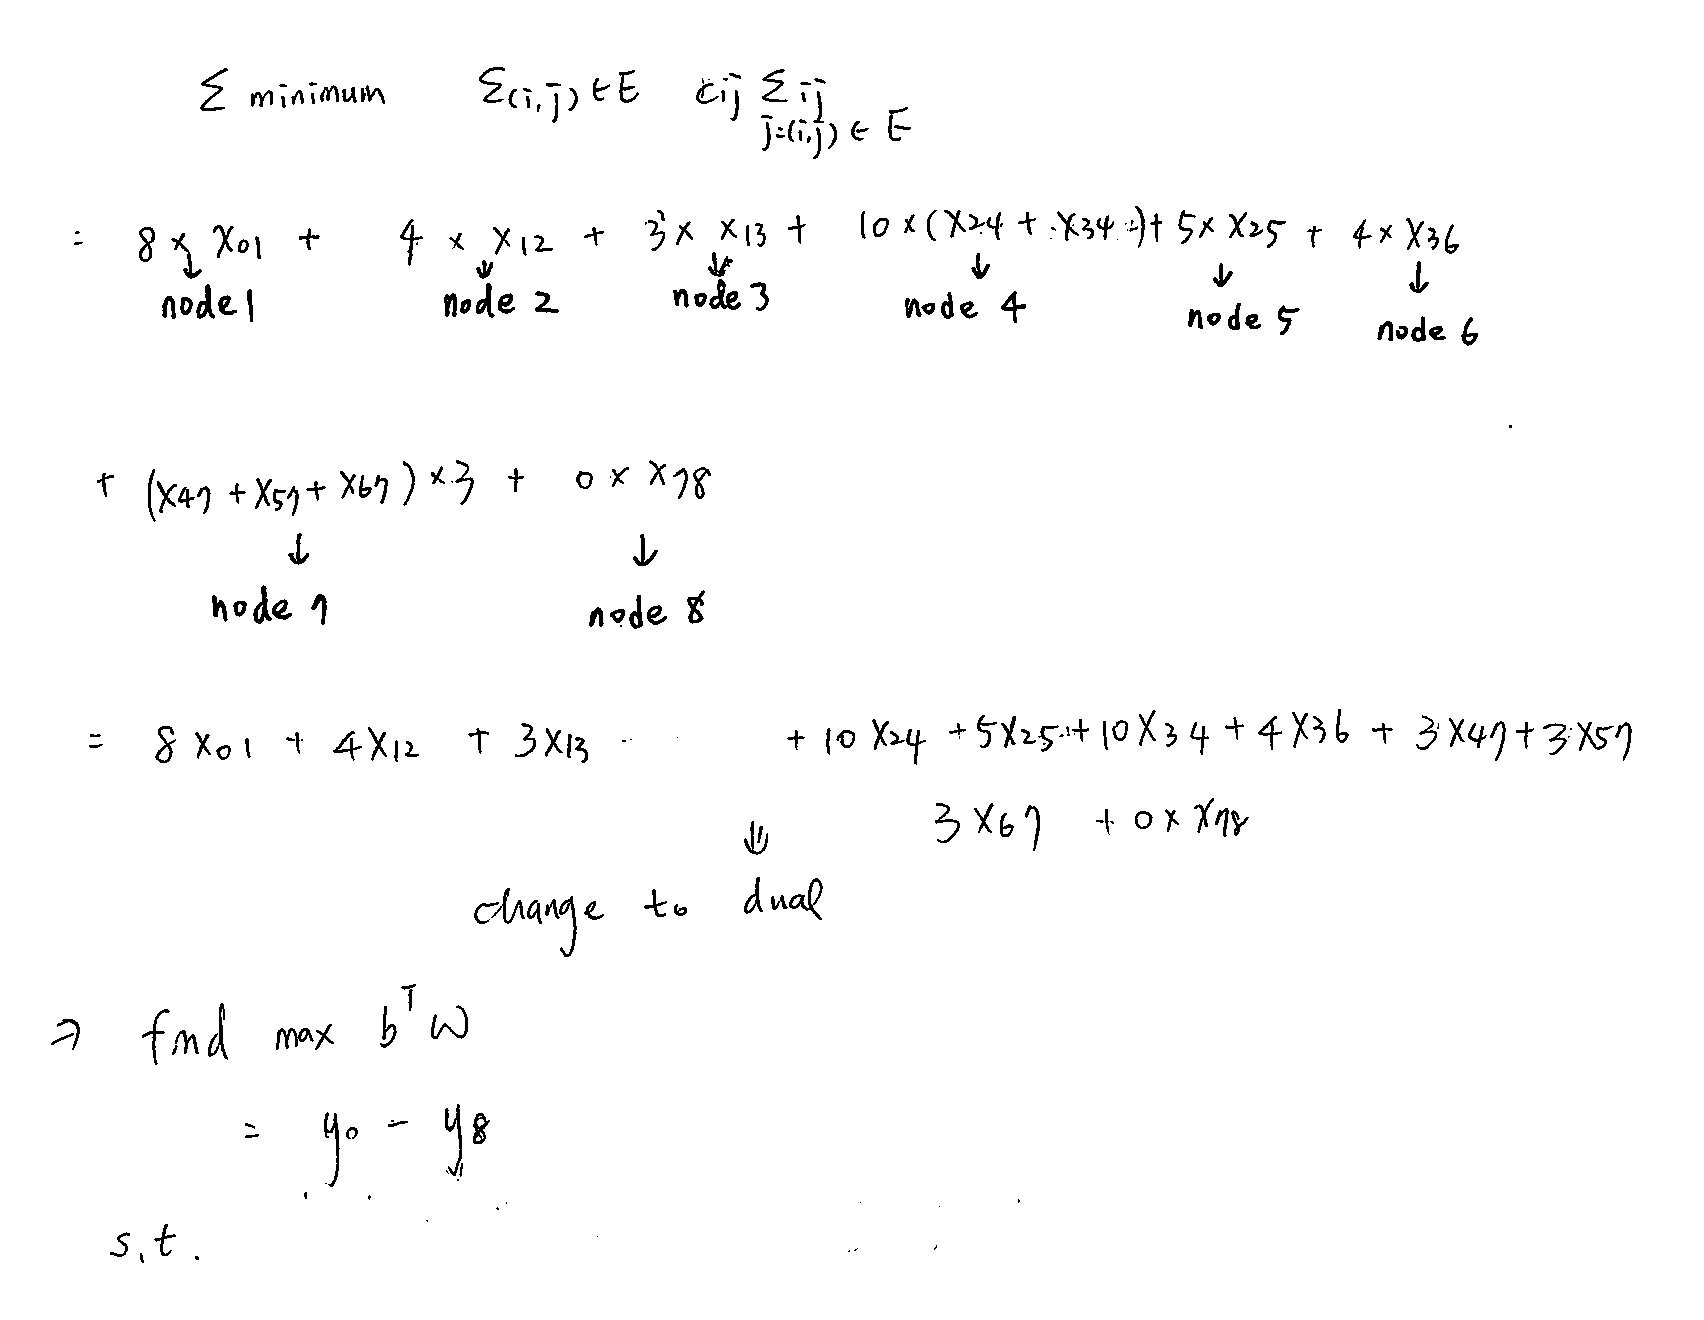 Σ minimum Σ(i,j) ∈ E cij Σ ij
j=(i,j) ∈ E
= 8 × X01 + 4 × X12 + 3 × X13 + 10 × (X24 + X34) + 5 × X25 + 4 × X36
↓ ↓ ↓ ↓ ↓ ↓
node 1 node 2 node 3 node 4 node 5 node 6
+ (X47 + X57 + X67) × 3 + 0 × X78
↓ ↓
node 7 node 8
= 8 X01 + 4 X12 + 3 X13 + 10 X24 + 5 X25 + 10 X34 + 4 X36 + 3 X47 + 3 X57
3 X67 + 0 × X78
⇓
change to dual
⇒ find max b^T w
= y0 - y8
s.t.